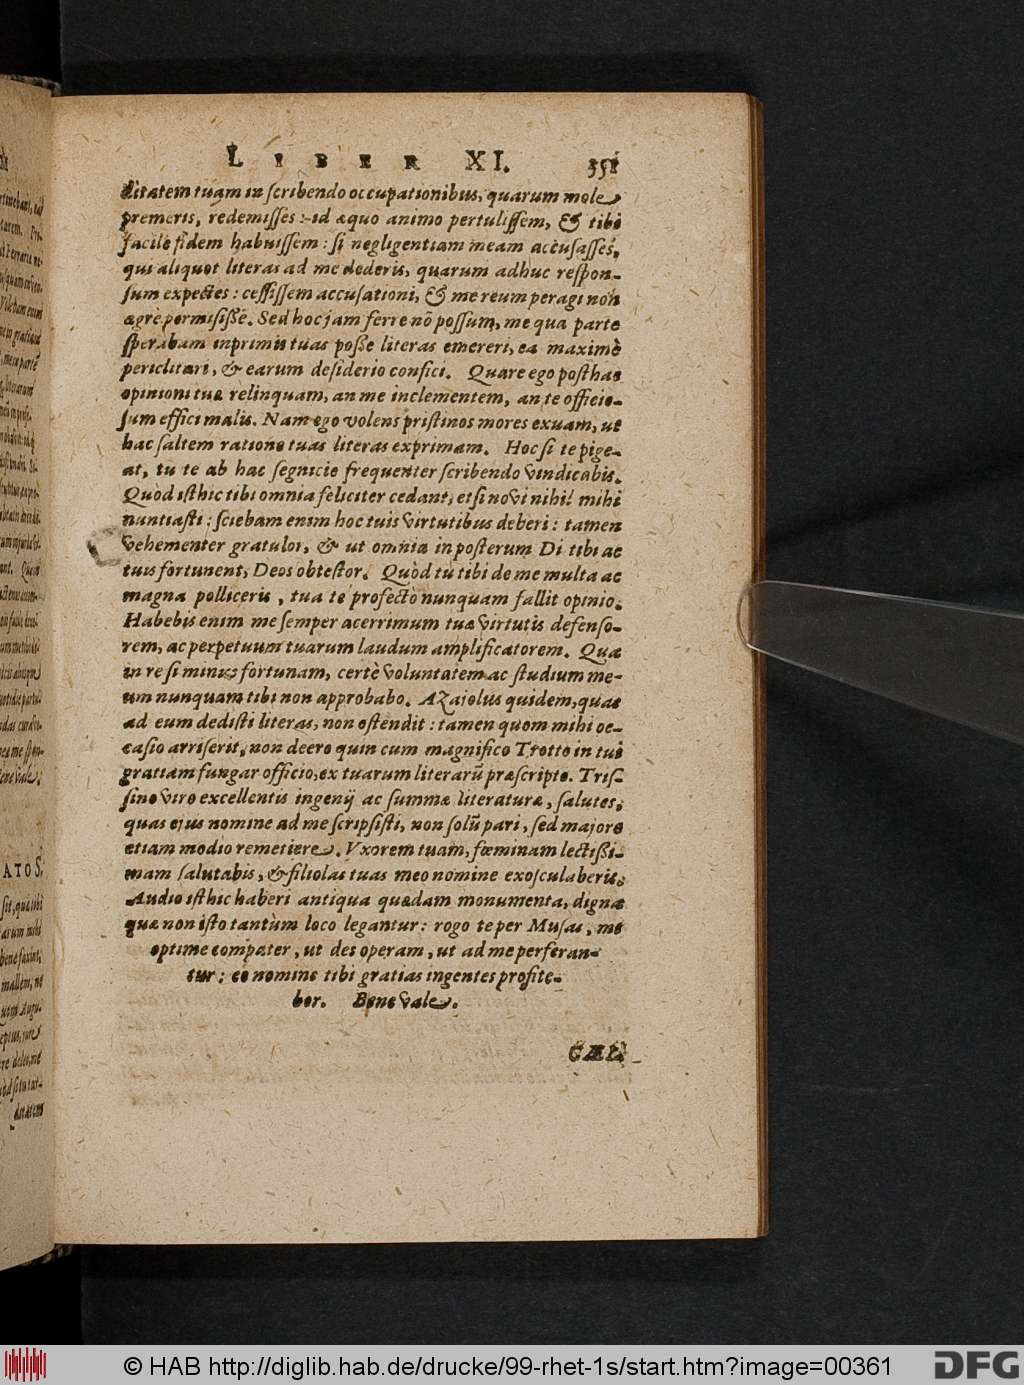 LIBER XI. 351
ditatem tuam in scribendo occupationibus, quarum mole
premeris, redemisses: id æquo animo pertulissem, & tibi
facilè fidem habuissem: si negligentiam meam accusasses,
qui aliquot literas ad me dederis, quarum adhuc respon-
sum expectes: cessissem accusationi, & me reum peragi non
ægrè permisissē. Sed hoc jam ferre nō possum, me qua parte
sperabam inprimis tuas posse literas emereri, ea maximè
periclitari, & earum desiderio confici. Quare ego posthac
opinioni tuæ relinquam, an me inclementem, an te officio-
sum effici malis. Nam ego volens pristinos mores exuam, ut
hac saltem ratione tuas literas exprimam. Hoc si te pige-
at, tu te ab hac segnicie frequenter scribendo vindicabis.
Quòd isthic tibi omnia feliciter cedant, etsi novi nihil mihi
nuntiasti: sciebam enim hoc tuis virtutibus deberi: tamen
vehementer gratulor, & ut omnia in posterum Di tibi ac
tuis fortunent, Deos obtestor. Quòd tu tibi de me multa ac
magna polliceris, tua te profectò nunquam fallit opinio.
Habebis enim me semper acerrimum tuæ virtutis defenso-
rem, ac perpetuum tuarum laudum amplificatorem. Qua
in re si minus fortunam, certè voluntatem ac studium me-
um nunquam tibi non approbabo. Azajolus quidem, quas
ad eum dedisti literas, non ostendit: tamen quom mihi oc-
casio arriserit, non deero quin cum magnifico Trotto in tui
gratiam fungar officio, ex tuarum literarū præscripto. Tris-
sino viro excellentis ingenij ac summæ literaturæ, salutes,
quas ejus nomine ad me scripsisti, non solū pari, sed majore
etiam modio remetiere. Vxorem tuam, fœminam lectissi-
mam salutabis, & filiolas tuas meo nomine exosculaberis.
Audio isthic haberi antiqua quædam monumenta, digna
quæ non isto tantùm loco legantur: rogo te per Musas, mi
optime compater, ut des operam, ut ad me perferan-
tur: eo nomine tibi gratias ingentes profite-
bor. Bene vale.
CÆL.
© HAB http://diglib.hab.de/drucke/99-rhet-1s/start.htm?image=00361
DFG